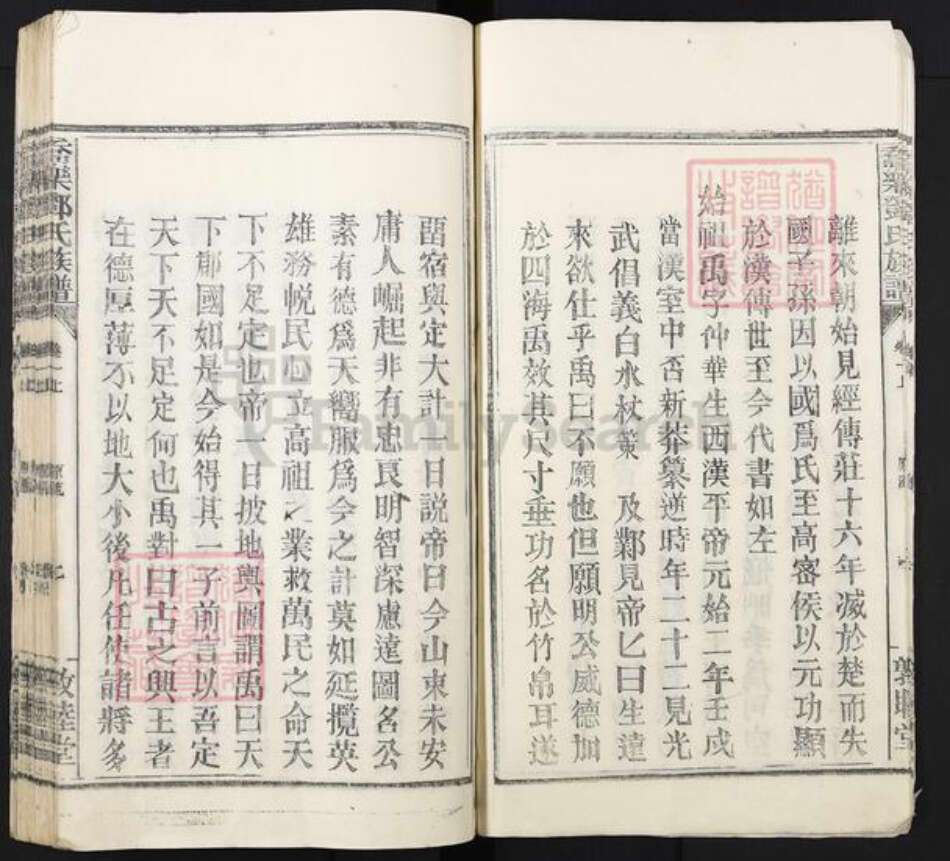 離來朝始見經傳莊十六年滅於楚而失
國子孫因以國爲氏至高密侯以元功顯
於漢傳世至今代書如左
始祖禹字仲華生西漢平帝元始二年壬戌
當漢室中否新莽纂逆時年二十二見光
武倡義白水杖策 及鄴見帝匕曰生遠
來欲仕乎禹曰不願也但願明公威德加
於四海禹效其尺寸垂功名於竹帛耳遂
畱宿與定大計一日説帝曰今山東未安
庸人崛起非有忠良明智深慮遠圖名公
素有德爲天嚮服爲今之計莫如延攬英
雄務悅民心立高祖之業救萬民之命天
下不足定也帝一日披地輿圖謂禹曰天
下郡國如是今始得其一子前言以吾定
天下天不足定何也禹對曰古之興王者
在德厚薄不以地大小後凡任使諸將多
鄧氏族譜
卷一上
敦睦堂
FamilySearch